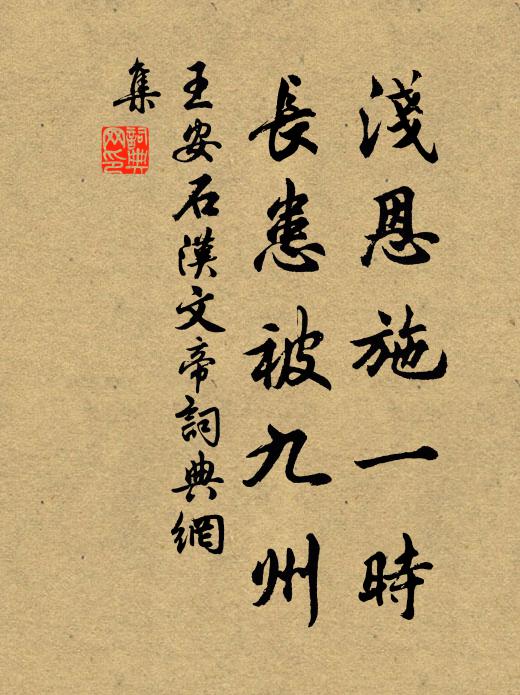 淺恩施一時
長患被九州
王安石漢文帝詞典網
集
詞典網印